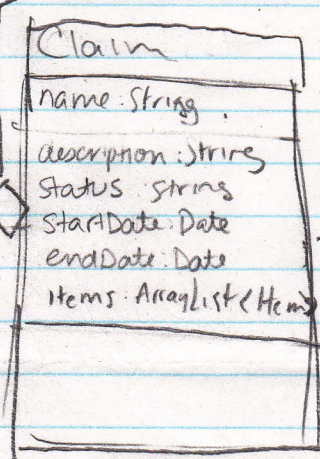 Claim
name: String
description: String
Status: String
StartDate: Date
endDate: Date
Items: ArrayList<Item>